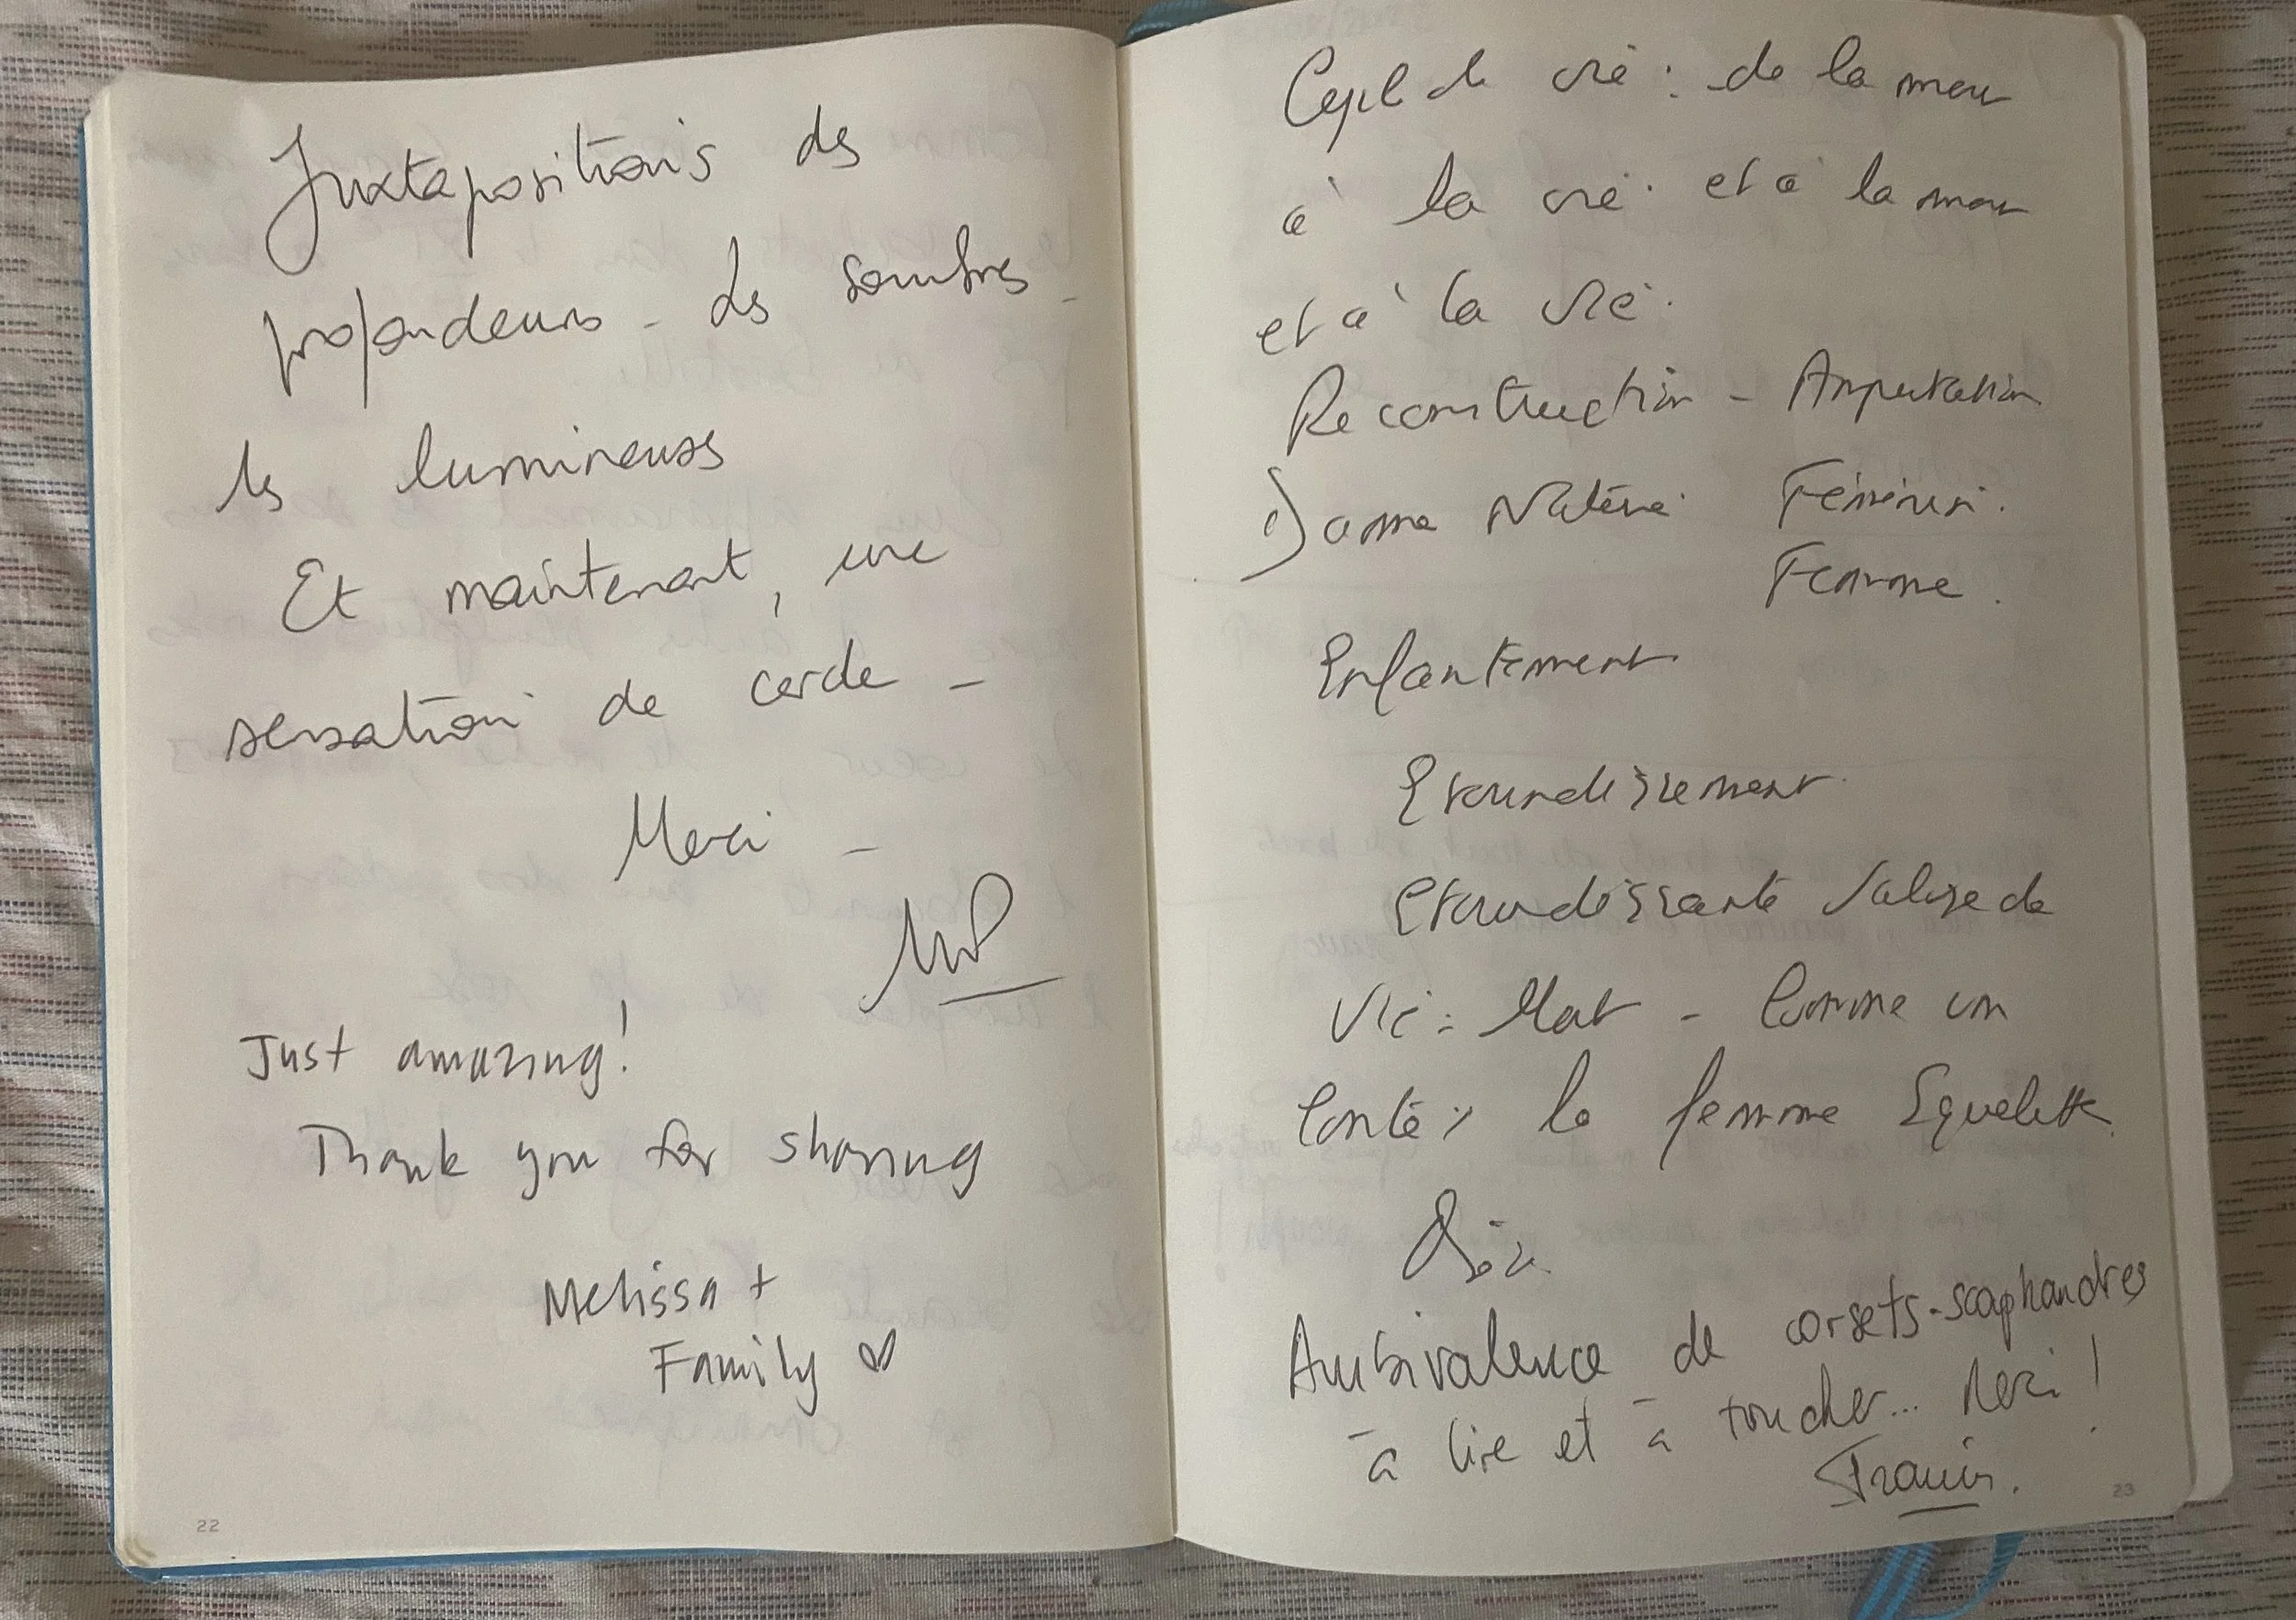 Juxtapositions des
profondeurs - des sombres -
les lumineuses
Et maintenant, une
sensation de cercle -
Merci -
MP
Just amazing!
Thank you for sharing
Melissa +
Family ♡
22
Cycle de vie : de la mort
à la vie. et à la mort
et à la vie.
Reconstruction - Amputation
Dame Nature Féminin.
Femme.
Enfantement
Etourdissement
Etourdissante Valse de
Vie : Mort - Comme un
Conte : la femme Squelette
Ambivalence de corsets-scaphandres
à lire et à toucher... Merci !
Francis.
23